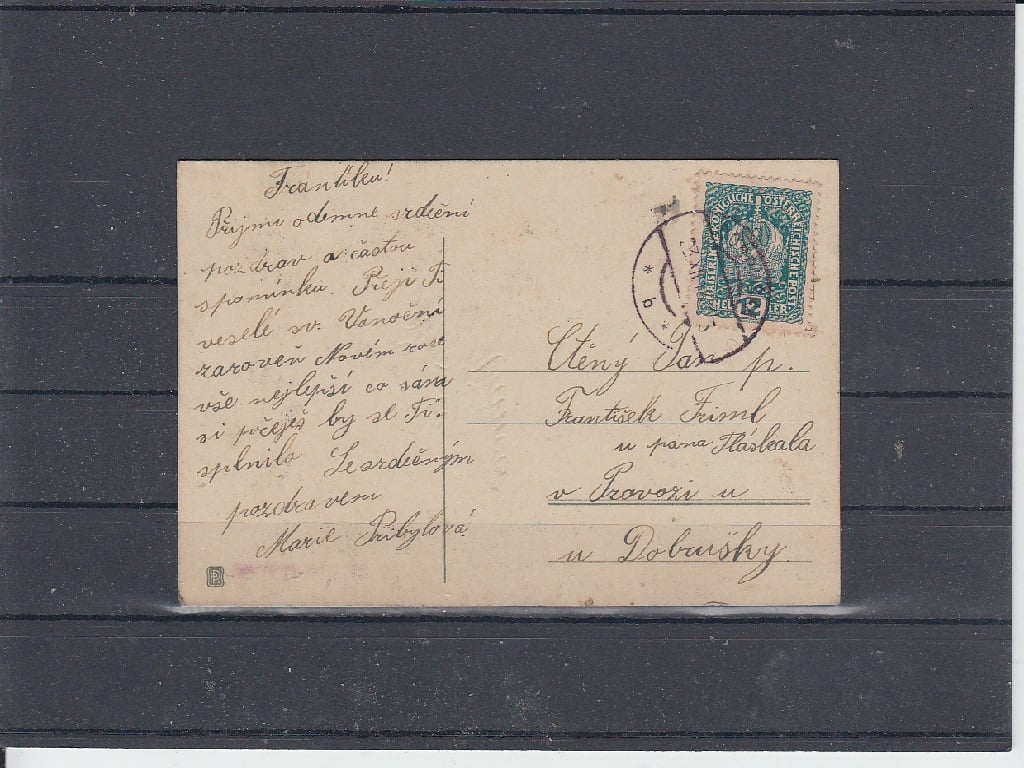 Františku!
Přijmi odemne srdeční
pozdrav a částou
spomínku. Přeji Ti
veselé sv. Vanoční
zaroveň Novém roce
vše nejlepší co sám
si přeješ by se Ti
splnilo Se srdečným
pozdravem
Marie Přibylová
KAISERLICHE KÖNIGLICHE ÖSTERREICHISCHE POST
12
b
Ctěný Pan p.
František Friml
u pana Tláskala
v Provozi u
u Dobrušky